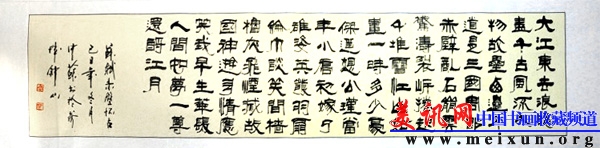 大江東去浪淘
盡千古風流人
物故壘西邊人
道是三國周郎
赤壁亂石崩雲
驚濤裂岸捲起
千堆雪江山如
畫一時多少豪
傑遙想公瑾當
年小喬初嫁了
雄姿英發羽扇
綸巾談笑間檣
櫓灰飛煙滅故
國神遊多情應
笑我早生華髮
人間如夢一尊
還酹江月
蘇軾赤壁懷古
己丑年冬月
美讯网
中国书画收藏频道
www.meixun.org